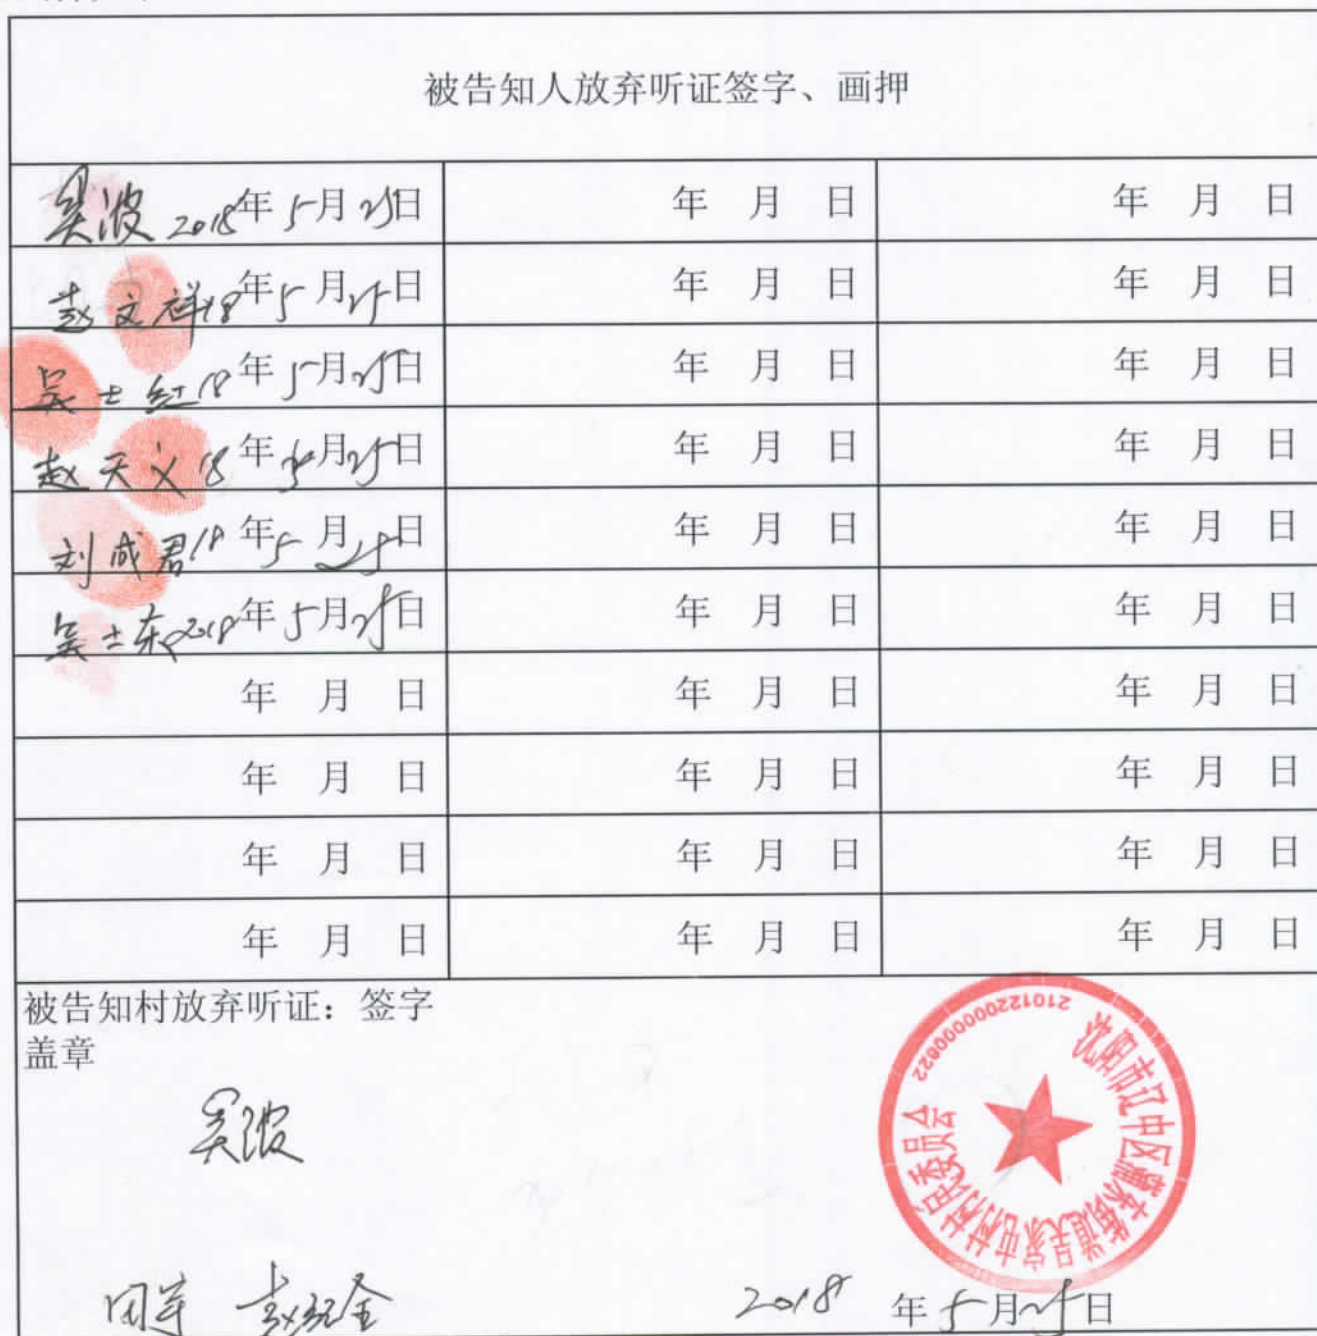 被告知人放弃听证签字、画押
吴波 2018年 5月 25日 年 月 日 年 月 日
赵文祥 18年 5月 25日 年 月 日 年 月 日
吴士红 18年 5月 25日 年 月 日 年 月 日
赵天义 18年 5月 25日 年 月 日 年 月 日
刘成君 18年 5月 25日 年 月 日 年 月 日
吴士东 2018年 5月 25日 年 月 日 年 月 日
年 月 日 年 月 日 年 月 日
年 月 日 年 月 日 年 月 日
年 月 日 年 月 日 年 月 日
年 月 日 年 月 日 年 月 日
被告知村放弃听证：签字
盖章
吴波
2018 年 5月25日
沈阳市辽中区蒲东街道吴家屯村村民委员会